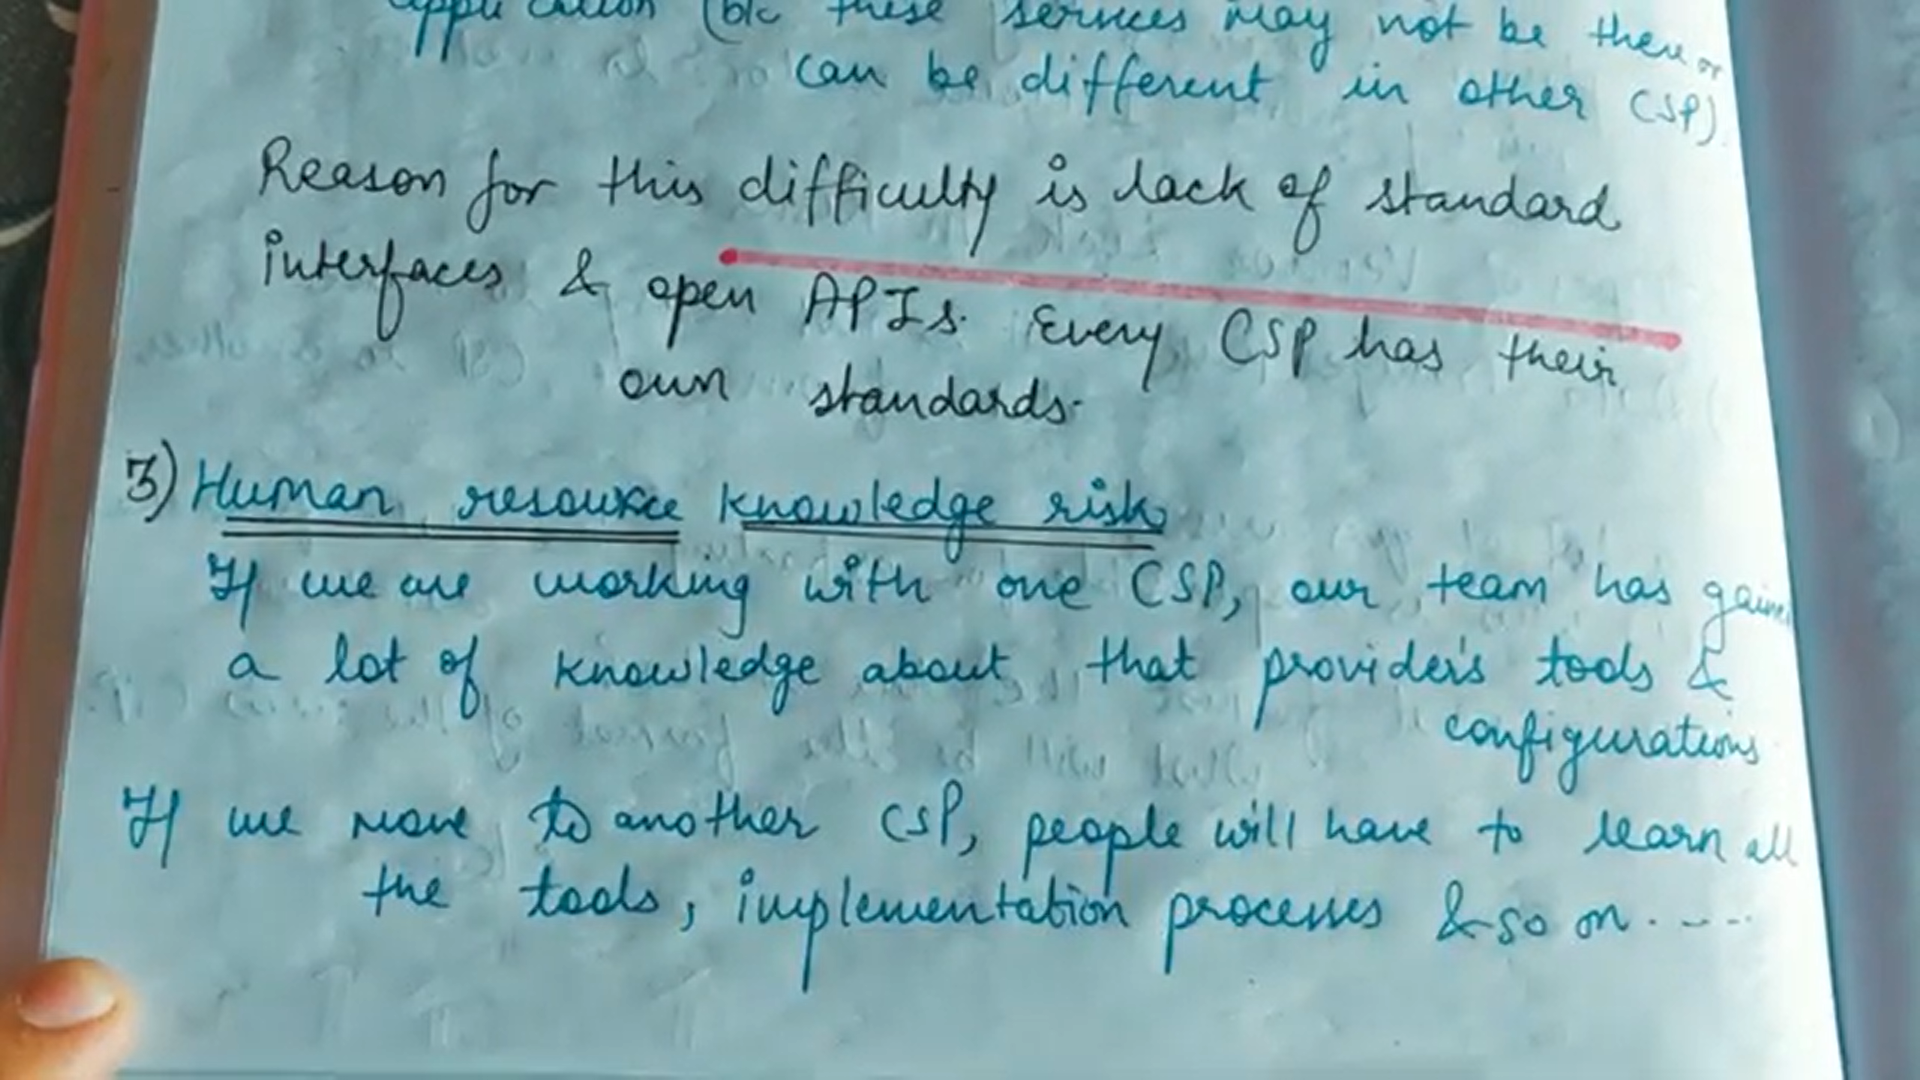 application (b/c these services may not be there or
can be different in other CSP).
Reason for this difficulty is lack of standard
interfaces & open APIs. Every CSP has their
own standards.
3) Human resource knowledge risk
If we are working with one CSP, our team has gained
a lot of knowledge about that provider's tools &
configurations
If we move to another CSP, people will have to learn all
the tools, implementation processes & so on.....